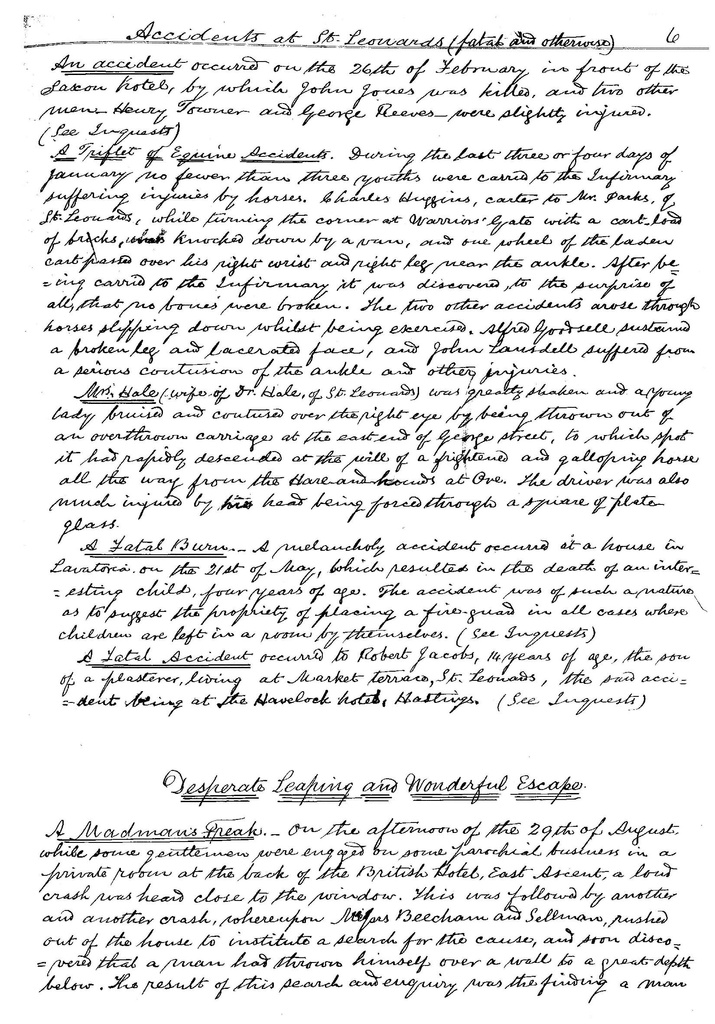 Accidents at St. Leonards (fatal and otherwise) 6
An accident occurred on the 26th of February in front of the
Saxon hotel, by which John Jones was killed, and two other
men – Henry Towner and George Reeves – were slightly injured.
(See Inquests)
A Triplet of Equine Accidents. During the last three or four days of
January no fewer than three youths were carried to the Infirmary
suffering injuries by horses. Charles Huggins, carter to Mr. Parks, of
St. Leonards, while turning the corner at Warriors' Gate with a cart-load
of bricks, was knocked down by a van, and one wheel of the laden
cart passed over his right wrist and right leg near the ankle. After be=
=ing carried to the Infirmary it was discovered, to the surprise of
all, that no bones were broken. The two other accidents arose through
horses slipping down whilst being exercised. Alfred Goodsell sustained
a broken leg and lacerated face, and John Lansdell suffered from
a serious contusion of the ankle and other injuries.
Mrs. Hale (wife of Dr. Hale, of St. Leonards) was greatly shaken and a young
lady bruised and contused over the right eye by being thrown out of
an overthrown carriage at the east end of George street, to which spot
it had rapidly descended at the will of a frightened and galloping horse
all the way from the Hare and hounds at Ore. The driver was also
much injured by his head being forced through a square of plate
glass.
A Fatal Burn. – A melancholy accident occured at a house in
Lavatoria on the 21st of May, which resulted in the death of an inter=
=esting child, four years of age. The accident was of such a nature
as to suggest the propriety of placing a fire-guad in all cases where
children are left in a room by themselves. (See Inquests)
A Fatal Accident occurred to Robert Jacobs, 14 years of age, the son
of a plasterer, living at Market terrace, St. Leonads, the said acci=
=dent being at the Havelock hotel, Hastings. (See Inquests)
Desperate Leaping and Wonderful Escape.
A Madman's Freak. – On the afternoon of the 29th of August,
while some gentlemen were engaged on some parochial business in a
private room at the back of the British Hotel, East Ascent, a loud
crash was heard close to the window. This was followed by another
and another crash, whereupon Beecham and Sellman, rushed
out of the house to institute a search for the cause, and soon disco=
=vered that a man had thrown himself over a wall to a great depth
below. The result of this search and enquiry was the finding a man